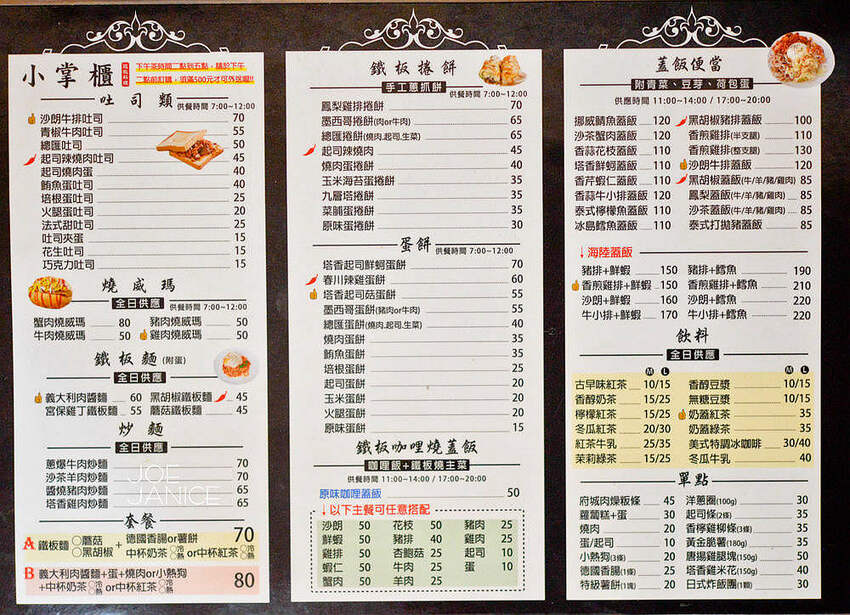 小掌櫃
下午茶時間二點到五點，請於下午
二點前訂購，須滿500元才可外送喔!!
吐司類 供餐時間 7:00~12:00
沙朗牛排吐司 70
青椒牛肉吐司 55
總匯吐司 50
起司辣燒肉吐司 45
起司燒肉蛋 40
鮪魚蛋吐司 35
培根蛋吐司 25
火腿蛋吐司 25
法式甜吐司 25
吐司夾蛋 15
花生吐司 15
巧克力吐司 15
燒威瑪
全日供應 供餐時間 7:00~12:00
蟹肉燒威瑪 80 豬肉燒威瑪 50
牛肉燒威瑪 50 雞肉燒威瑪 50
鐵板麵(附蛋)
全日供應
義大利肉醬麵 60 黑胡椒鐵板麵 45
宮保雞丁鐵板麵 55 蘑菇鐵板麵 45
炒麵
全日供應
蔥爆牛肉炒麵 70
沙茶羊肉炒麵 70
醬燒豬肉炒麵 65
塔香雞肉炒麵 65
JOE
JANICE
套餐
A 鐵板麵 ○蘑菇 ○黑胡椒 + 德國香腸or薯餅 70
中杯奶茶 ○冷 ○熱 or中杯紅茶 ○冷 ○熱
B 義大利肉醬麵+蛋+燒肉or小熱狗 80
+中杯奶茶 ○冷 ○熱 or中杯紅茶 ○冷 ○熱
鐵板捲餅
手工蔥抓餅
供餐時間 7:00~12:00
鳳梨雞排捲餅 70
墨西哥捲餅(肉or牛肉) 65
總匯捲餅(燒肉,起司,生菜) 65
起司辣燒肉 45
燒肉蛋捲餅 40
玉米海苔蛋捲餅 35
九層塔捲餅 35
菜脯蛋捲餅 35
原味蛋捲餅 30
蛋餅
供餐時間 7:00~12:00
塔香起司鮮蚵蛋餅 70
春川辣雞蛋餅 60
塔香起司菇蛋餅 55
墨西哥蛋餅(豬肉or牛肉) 55
總匯蛋餅(燒肉,起司,生菜) 40
燒肉蛋餅 35
鮪魚蛋餅 35
培根蛋餅 25
起司蛋餅 25
玉米蛋餅 25
火腿蛋餅 25
原味蛋餅 15
鐵板咖哩燒蓋飯
咖哩飯+鐵板燒主菜
供餐時間 11:00~14:00 / 17:00~20:00
原味咖哩蓋飯 50
↓以下主餐可任意搭配
沙朗 50 花枝 50 豬肉 25
鮮蝦 50 豬排 40 雞肉 25
雞排 50 杏鮑菇 25 起司 10
蝦仁 50 牛肉 25 蛋 10
蟹肉 50 羊肉 25
蓋飯便當
附青菜、豆芽、荷包蛋
供應時間 11:00~14:00 / 17:00~20:00
挪威鯖魚蓋飯 120 黑胡椒豬排蓋飯 100
沙茶蟹肉蓋飯 120 香煎雞排(半支腿) 130
香蒜花枝蓋飯 110 香煎雞排(整支腿) 130
塔香鮮蚵蓋飯 110 沙朗牛排蓋飯 120
香芹蝦仁蓋飯 110 黑胡椒蓋飯(牛/羊/豬/雞肉) 85
香蒜牛小排蓋飯 110 鳳梨蓋飯(牛/羊/豬/雞肉) 85
泰式檸檬魚蓋飯 110 沙茶蓋飯(牛/羊/豬/雞肉) 85
冰島鱈魚蓋飯 110 泰式打拋豬蓋飯 85
↓海陸蓋飯
豬排+鮮蝦 150 豬排+鱈魚 190
香煎雞排+鮮蝦 150 香煎雞排+鱈魚 210
沙朗+鮮蝦 160 沙朗+鱈魚 220
牛小排+鮮蝦 170 牛小排+鱈魚 220
飲料
全日供應
M L M L
古早味紅茶 10/15 香醇豆漿 10/15
香醇奶茶 15/25 無糖豆漿 10/15
檸檬紅茶 15/25 奶蓋紅茶 35
冬瓜紅茶 20/30 奶蓋綠茶 35
紅茶牛乳 25/35 美式特調冰咖啡 30/40
茉莉綠茶 15/25 冬瓜牛乳 40
單點
府城肉燥粄條 45 洋蔥圈(100g) 30
蘿蔔糕+蛋 30 起司條(2條) 35
燒肉 20 香檸雞柳條(3條) 35
蛋/起司 10 黃金脆薯(180g) 35
小熱狗(3條) 20 唐揚雞腿塊(150g) 50
德國香腸(1條) 25 塔香雞米花(150g) 40
特級薯餅(1塊) 20 日式炸飯團(1顆) 30